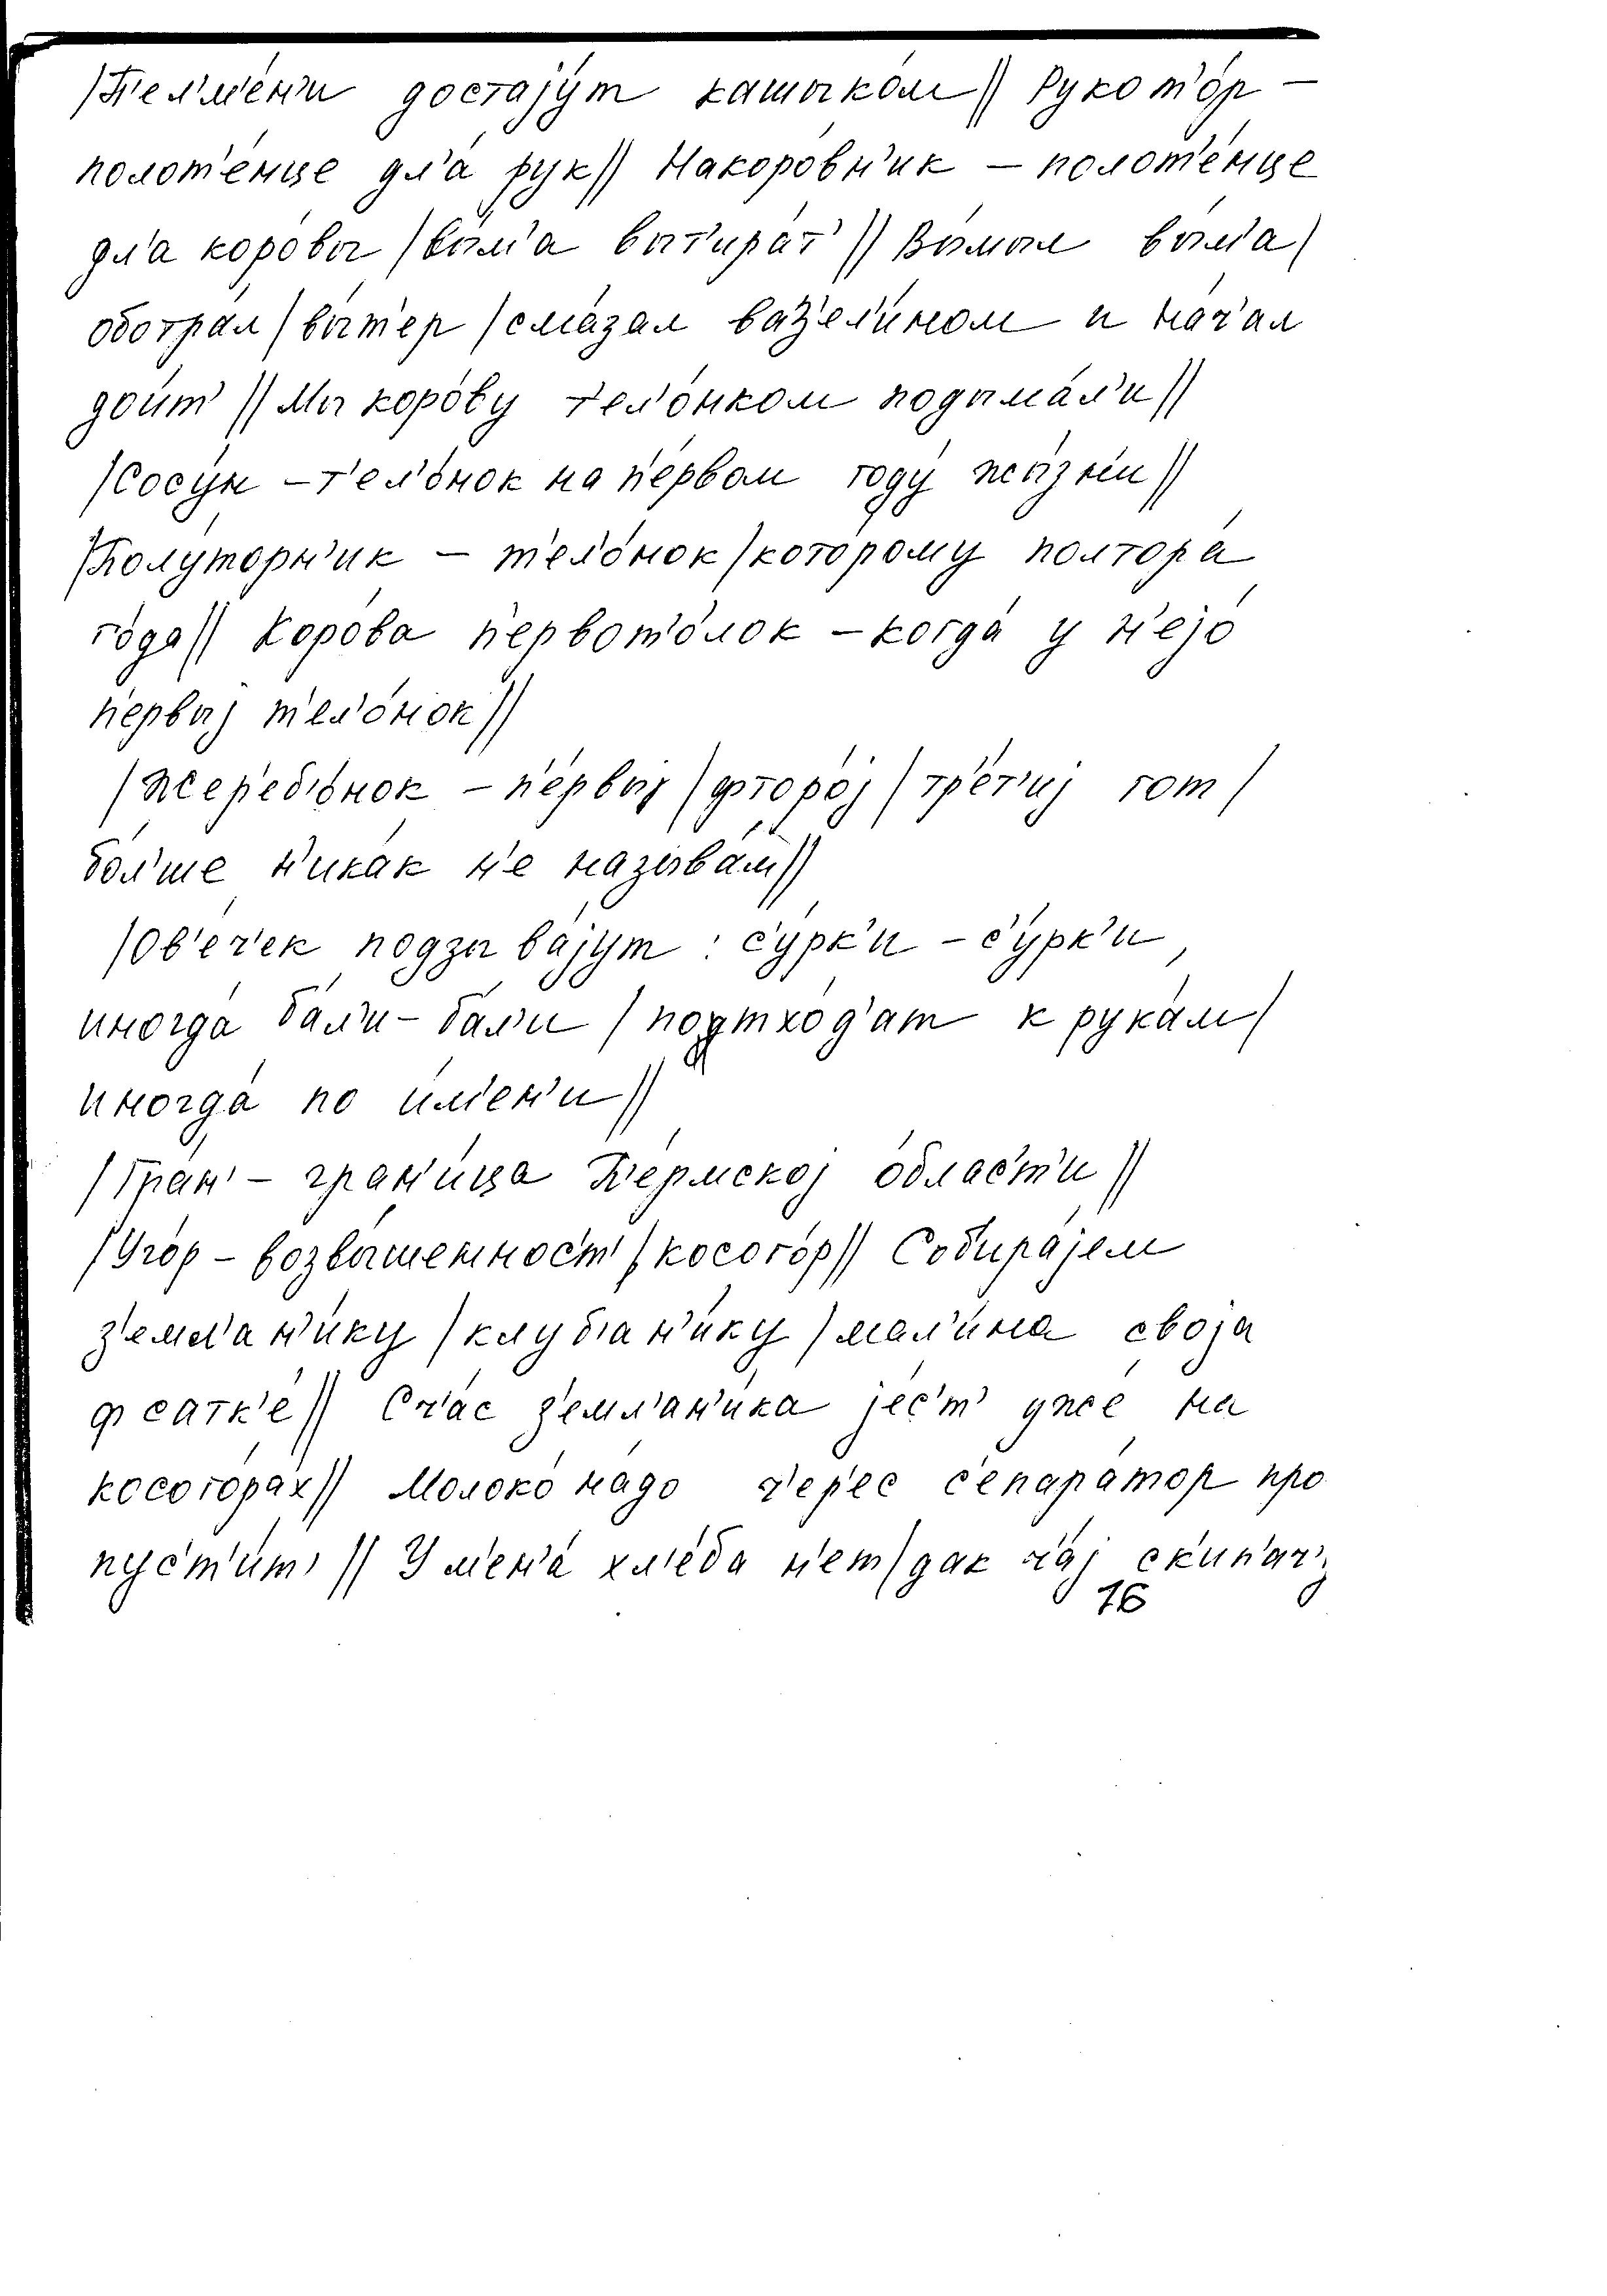 /П'ел'м'е́н'и достају́т кашыко́м// Рукот'о́р –
полот'е́нце дл'а́ рук// Накоро́вн'ик – полот'е́нце
дл'а коро́вы /вы́м'а выт'ира́т'// Вы́мыл вы́м'а/
оботра́л /вы́т'ер /сма́зал ваз'ел'и́ном и на́ч'ал
дои́т'// Мы коро́ву т'ел'о́нком подыма́л'и//
/Сосу́н – т'ел'о́нок на п'е́рвом году́ жы́зн'и//
/Полу́торн'ик – т'ел'о́нок /кото́рому полтора́
го́да// Коро́ва п'ервот'о́лок – когда́ у н'ејо́
п'е́рвыј т'ел'о́нок//
/Жер'еб'о́нок – п'е́рвыј /фторо́ј /тр'е́т'иј гот/
бо́л'ше н'ика́к н'е называ́м//
/Ов'е́ч'ек подзыва́јут : с'у́рк'и – с'у́рк'и,
иногда́ ба́л'и – ба́л'и /потхо́д'ат к рука́м/
иногда́ по и́м'ен'и//
/Гра́н' – гран'и́ца П'е́рмској о́бласт'и//
/Уго́р – возвы́шенност' /косого́р// Собира́јем
з'емл'ан'и́ку /клуб'ан'и́ку /мал'и́на своја
ф сатк'е́// Сч'а́с з'емл'ан'и́ка је́с'т' уже́ на
косого́рах// Молоко́ на́до ч'е́р'ес с'епара́тор про
пус'т'и́т'// У м'ен'а́ хл'е́ба н'ет /дак ч'ај ск'ип'ач'у
16